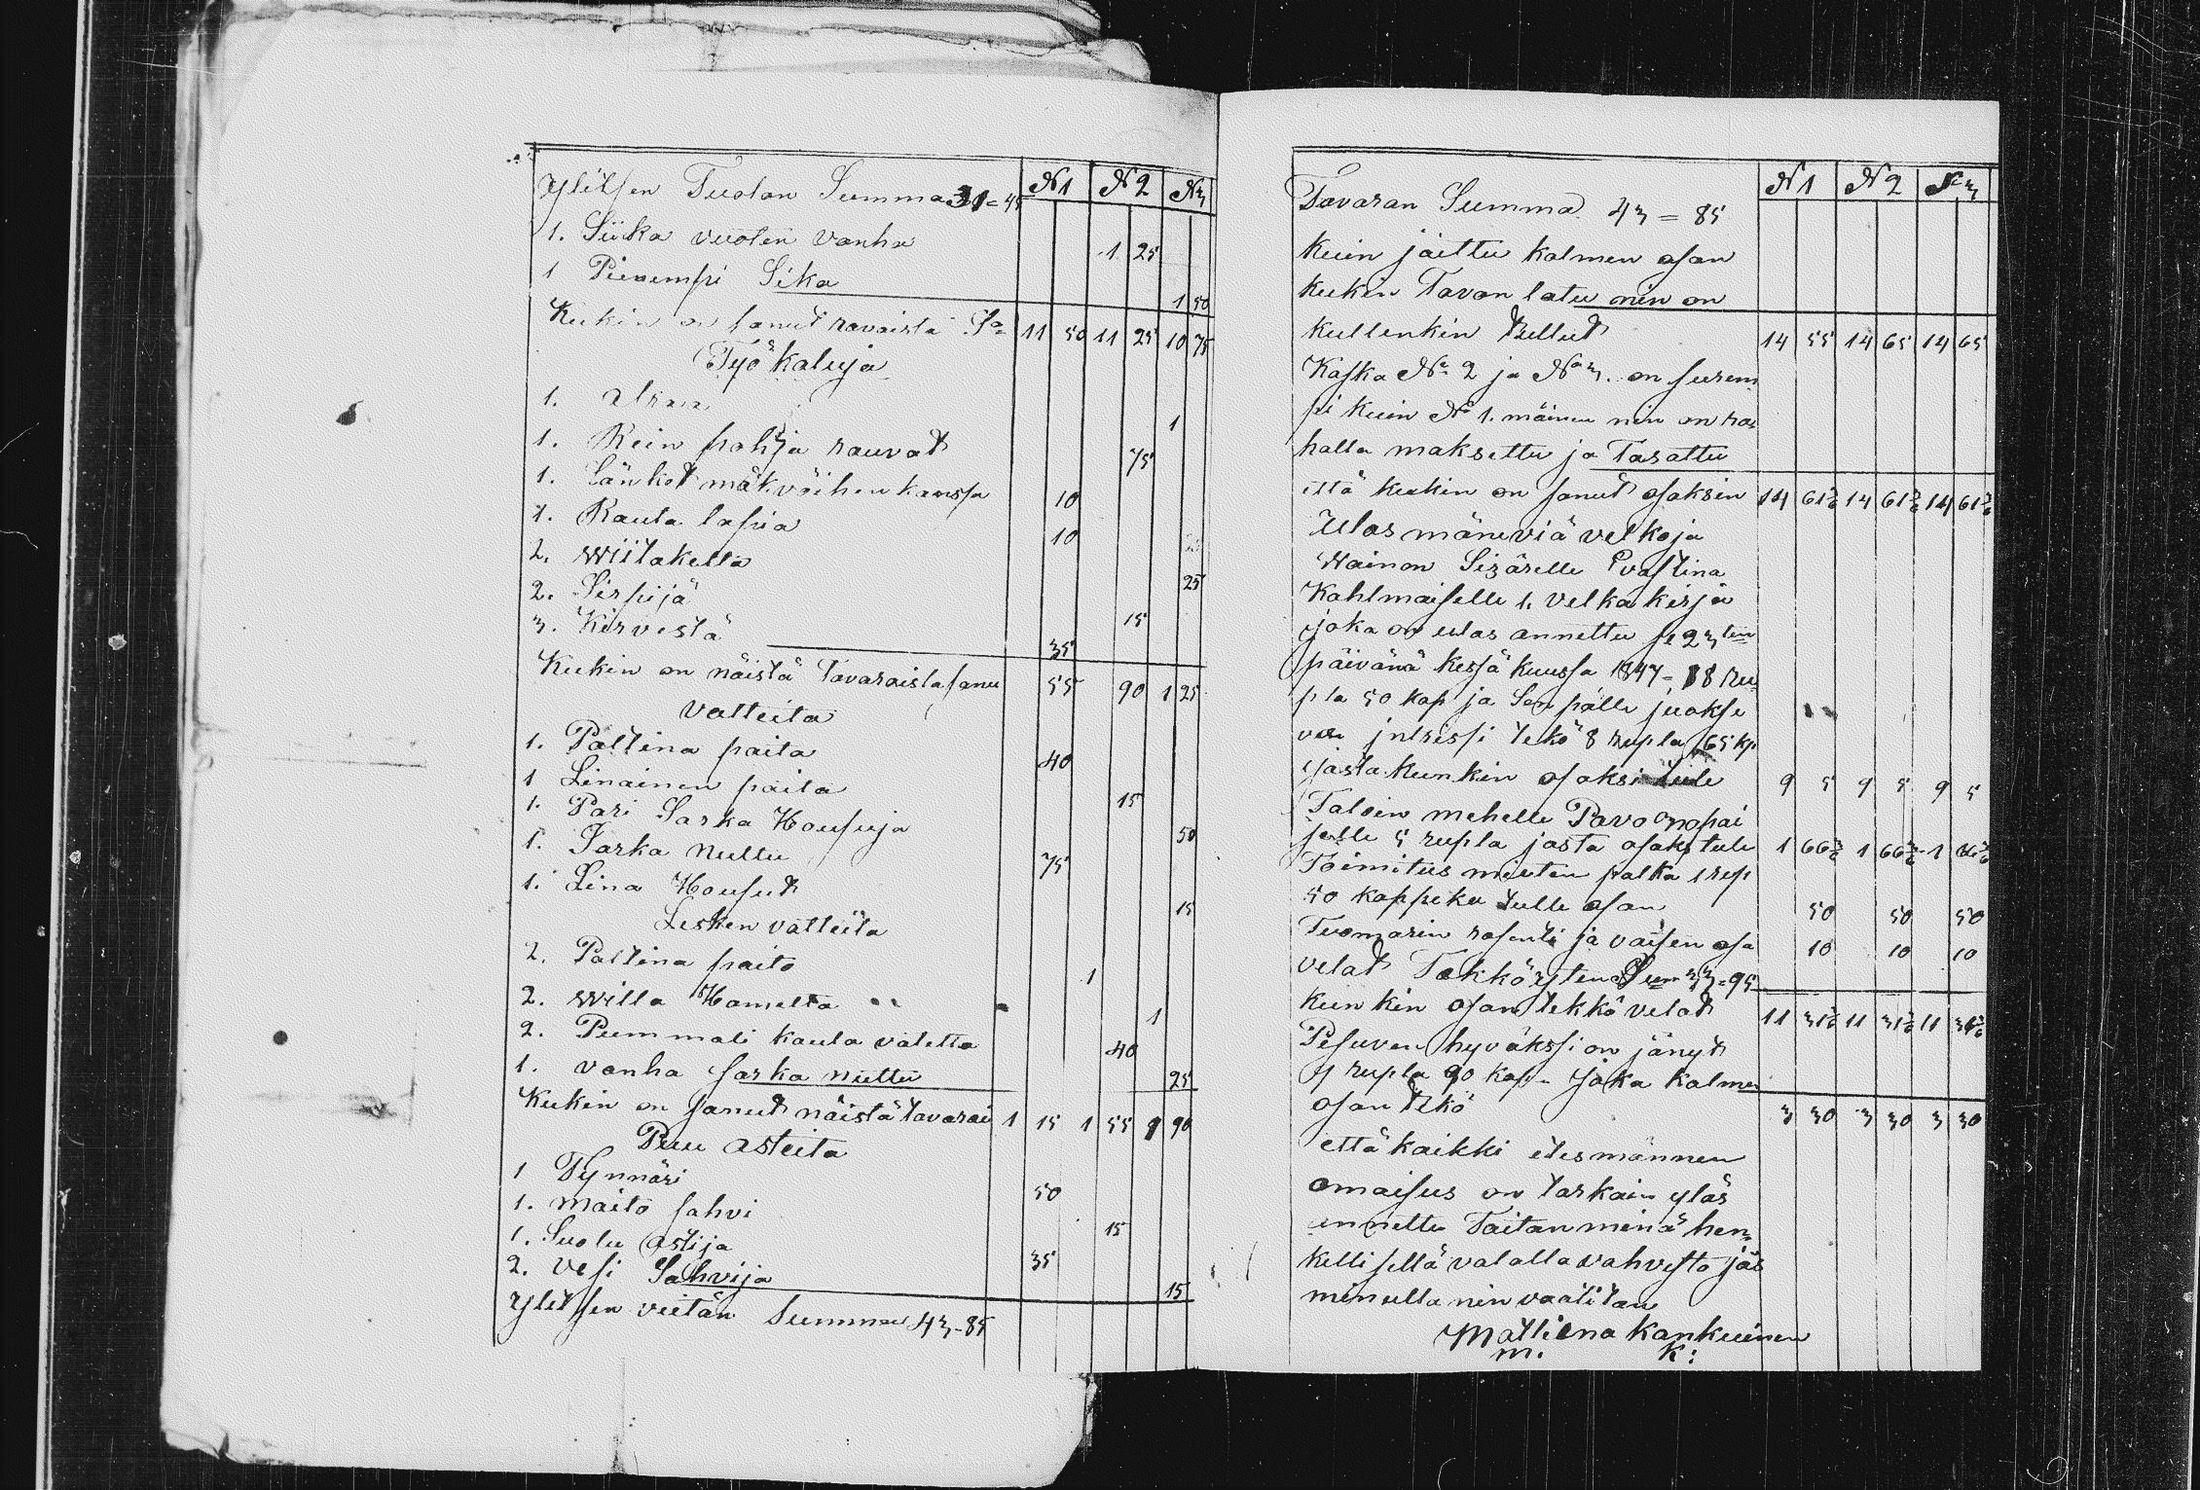 N 1 N 2 N 3
Ylitsen Tuolon Summa 31 = 45
1. Siika vuoten vanha 1 25
1 Pienempi Sika 1 50
Kukin on sanut ravaista Sa= 11 50 11 25 10 75
Työ kaluja
1. 1
1. Rein pohja rauvat 75
1. Länket mäk vöihen kanssa 10
1. Rauta lapia 10
2. Wiitaketta 25
2. Sirpijä 15
3. Kirvestä 35
Kukin on näistä Tavaraista sanu 55 90 1 25
Vatteita
1. Paltina paita 40
1 Linainen paita 15
1. Pari Sarka Housuja 50
1. Sarka Nuttu 75
1. Lina Housut 15
Lesken vatteita
2. Paltina paito 1
2. Willa Hametta 1
2. Pummali kaula vatetta 40
1. vanha sarka nuttu 25
Kukin on sanut näistä tavarai 1 15 1 55 1 90
Puu Asteita
1 Tynnäri 50
1. Maito sahvi 15
1. Suolu astija 35
2. Vesi Sahvija 15
Ylitsen vietän Summa 43-85
N 1 N 2 N 3
Tavaran Summa 43 = 85
kuin jaittu kolmen osan
kukin Tavan latu nin on
kullenkin tullut 14 55 14 65 14 65
Koska No 2 ja No 3. on surem
pi kuin No 1. mäinen nin on ra
halla maksettu ja Tasattu
että kukin on sanut osaksin 14 61 2/6 14 61 2/6 14 61 2/6
Ulos mäneviä velkoja
Wainon Sisärelle Evastina
Kohlmaiselle 1. Velka kirja
joka on ulos annettu se 23ten
päivänä kessä kuussa 1847 = 18 ru
pla 50 kop ja Sen pälle juokse
va intrissi tekö 8 rupla 65 kp
josta kunkin osaksi tule 9 5 9 5 9 5
Taloin mehelle Pavo
selle 5 rupla josta osaks tule 1 66 4/6 1 66 4/6 1 66 4/6
Toimitus miesten palka 1 rup
50 kappeka tulle osan 50 50 50
Tuomarin rosenti ja vaisen osa 10 10 10
velat Tekkö ysten Sum 33-95
kunkin osan tekkö velat 11 31 4/6 11 31 4/6 11 31 4/6
Pesuven hyväkssi on jänyt
9 rupla 90 kop. Joka kolmen
osan tekö 3 30 3 30 3 30
että kaikki etesmännen
omaisus on tarkain ylös
annettu Taitan minä hen=
kellisellä valalla vahvesto jos
minulta nin vaatitan
Mattiena Kankuinen
m. k: